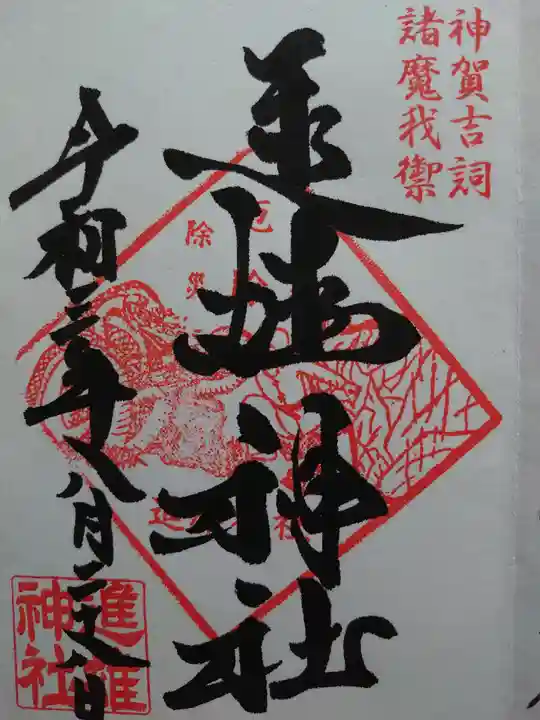 神賀吉詞
諸魔我禦
進雄神社
除災
令和三年八月二十八日
進雄
神社